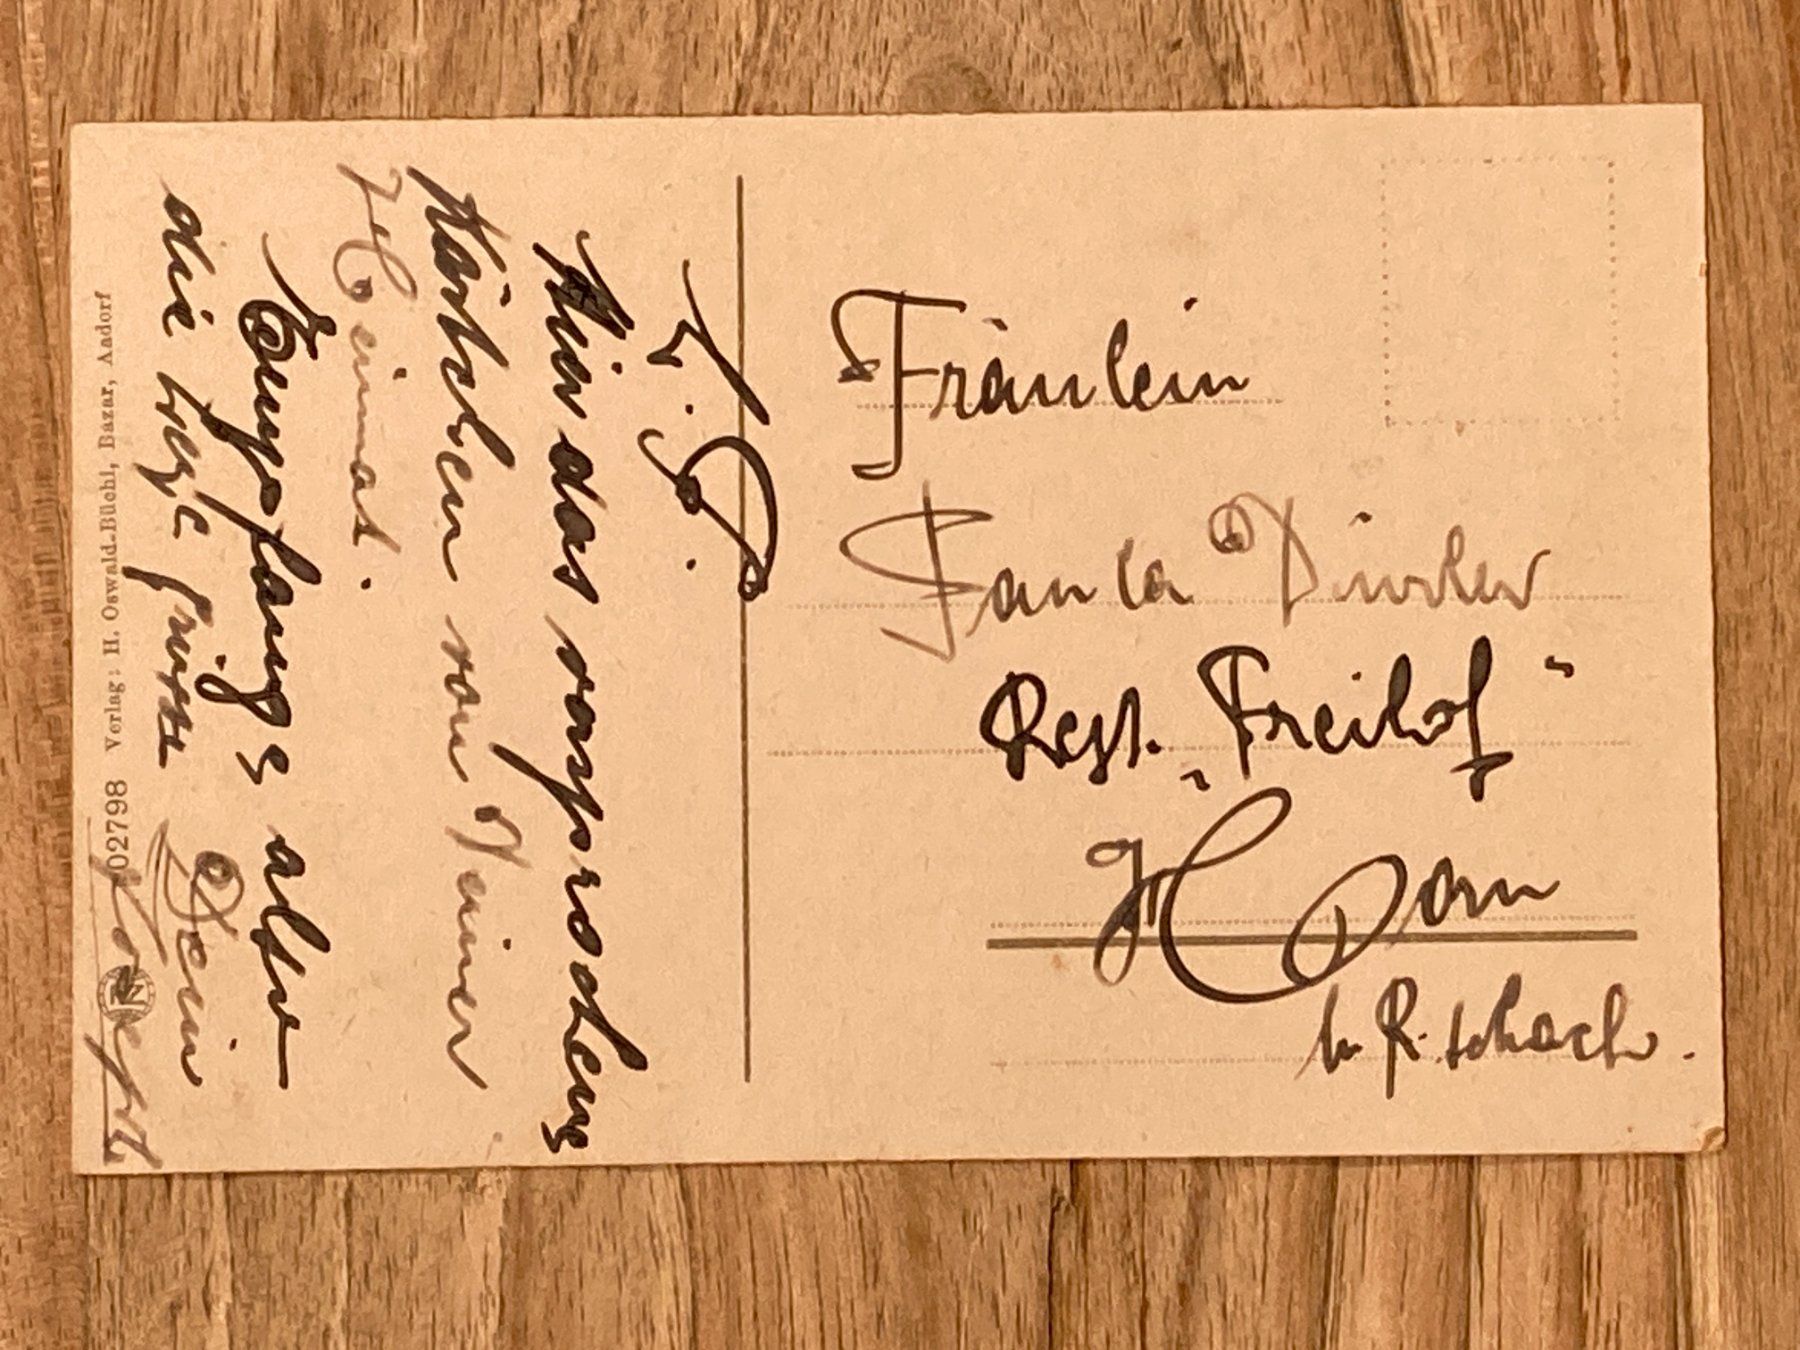 L. P.
Hier das versprochene
Kärtchen von Deiner
Heimat.
Empfange alle
die Grüsse Dein
Fräulein
Paula
Rest. „Freihof"
Horn
b. R. schach.
02798 Verlag: H. Oswald-Büchi, Bazar, Aadorf